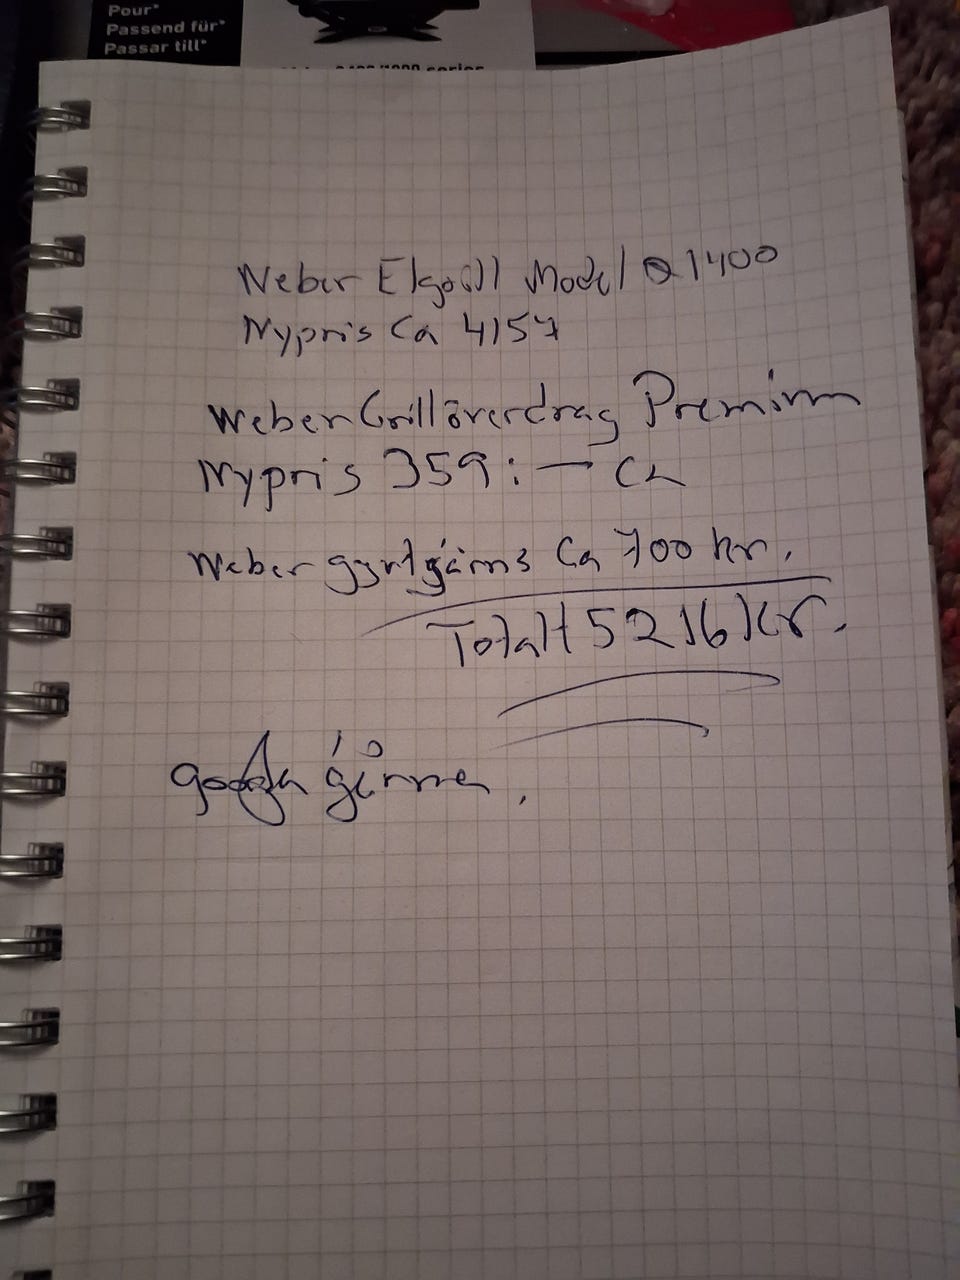 Pour*
Passend für*
Passar till*
series
Weber Elgrill Model Q1400
Nypris Ca 4157
Weber Grillöverdrag Premium
Nypris 359:- Ca
Weber gjutjärns Ca 700 kr.
Totalt 5216 Kr.
googla gärna.